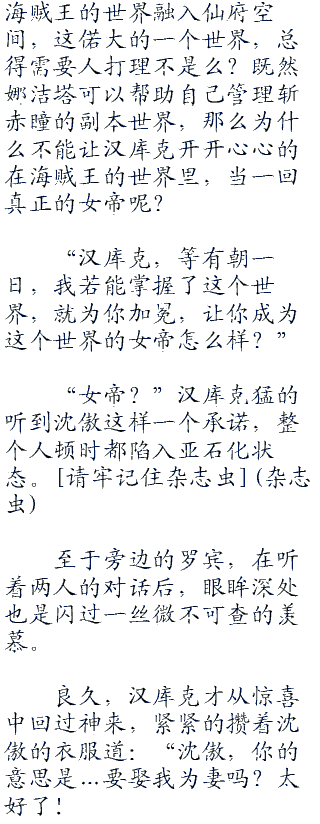 海贼王的世界融入仙府空
间，这偌大的一个世界，总
得需要人打理不是么？既然
娜洁塔可以帮助自己管理斩
赤瞳的副本世界，那么为什
么不能让汉库克开开心心的
在海贼王的世界里，当一回
真正的女帝呢？
“汉库克，等有朝一
日，我若能掌握了这个世
界，就为你加冕，让你成为
这个世界的女帝怎么样？”
“女帝？”汉库克猛的
听到沈傲这样一个承诺，整
个人顿时都陷入亚石化状
态。[请牢记住杂志虫](杂志
虫)
至于旁边的罗宾，在听
着两人的对话后，眼眸深处
也是闪过一丝微不可查的羡
慕。
良久，汉库克才从惊喜
中回过神来，紧紧的攒着沈
傲的衣服道：“沈傲，你的
意思是…要娶我为妻吗？太
好了！